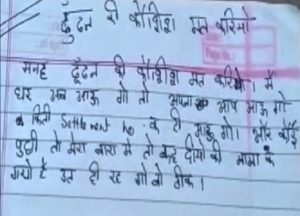 ढुँढन री कोशिश मत करियो
मनह ढूँढन की कोशिश मत करियो। में
घर अब आऊ गो तो अपना आप आऊ गो
व किसी Settlement ho व ही आऊ गो। और कोई
पुछी तो मेरा बारा में तो कह दीयो की मामा क
गयो है उत ही रह गो वो ठीक।